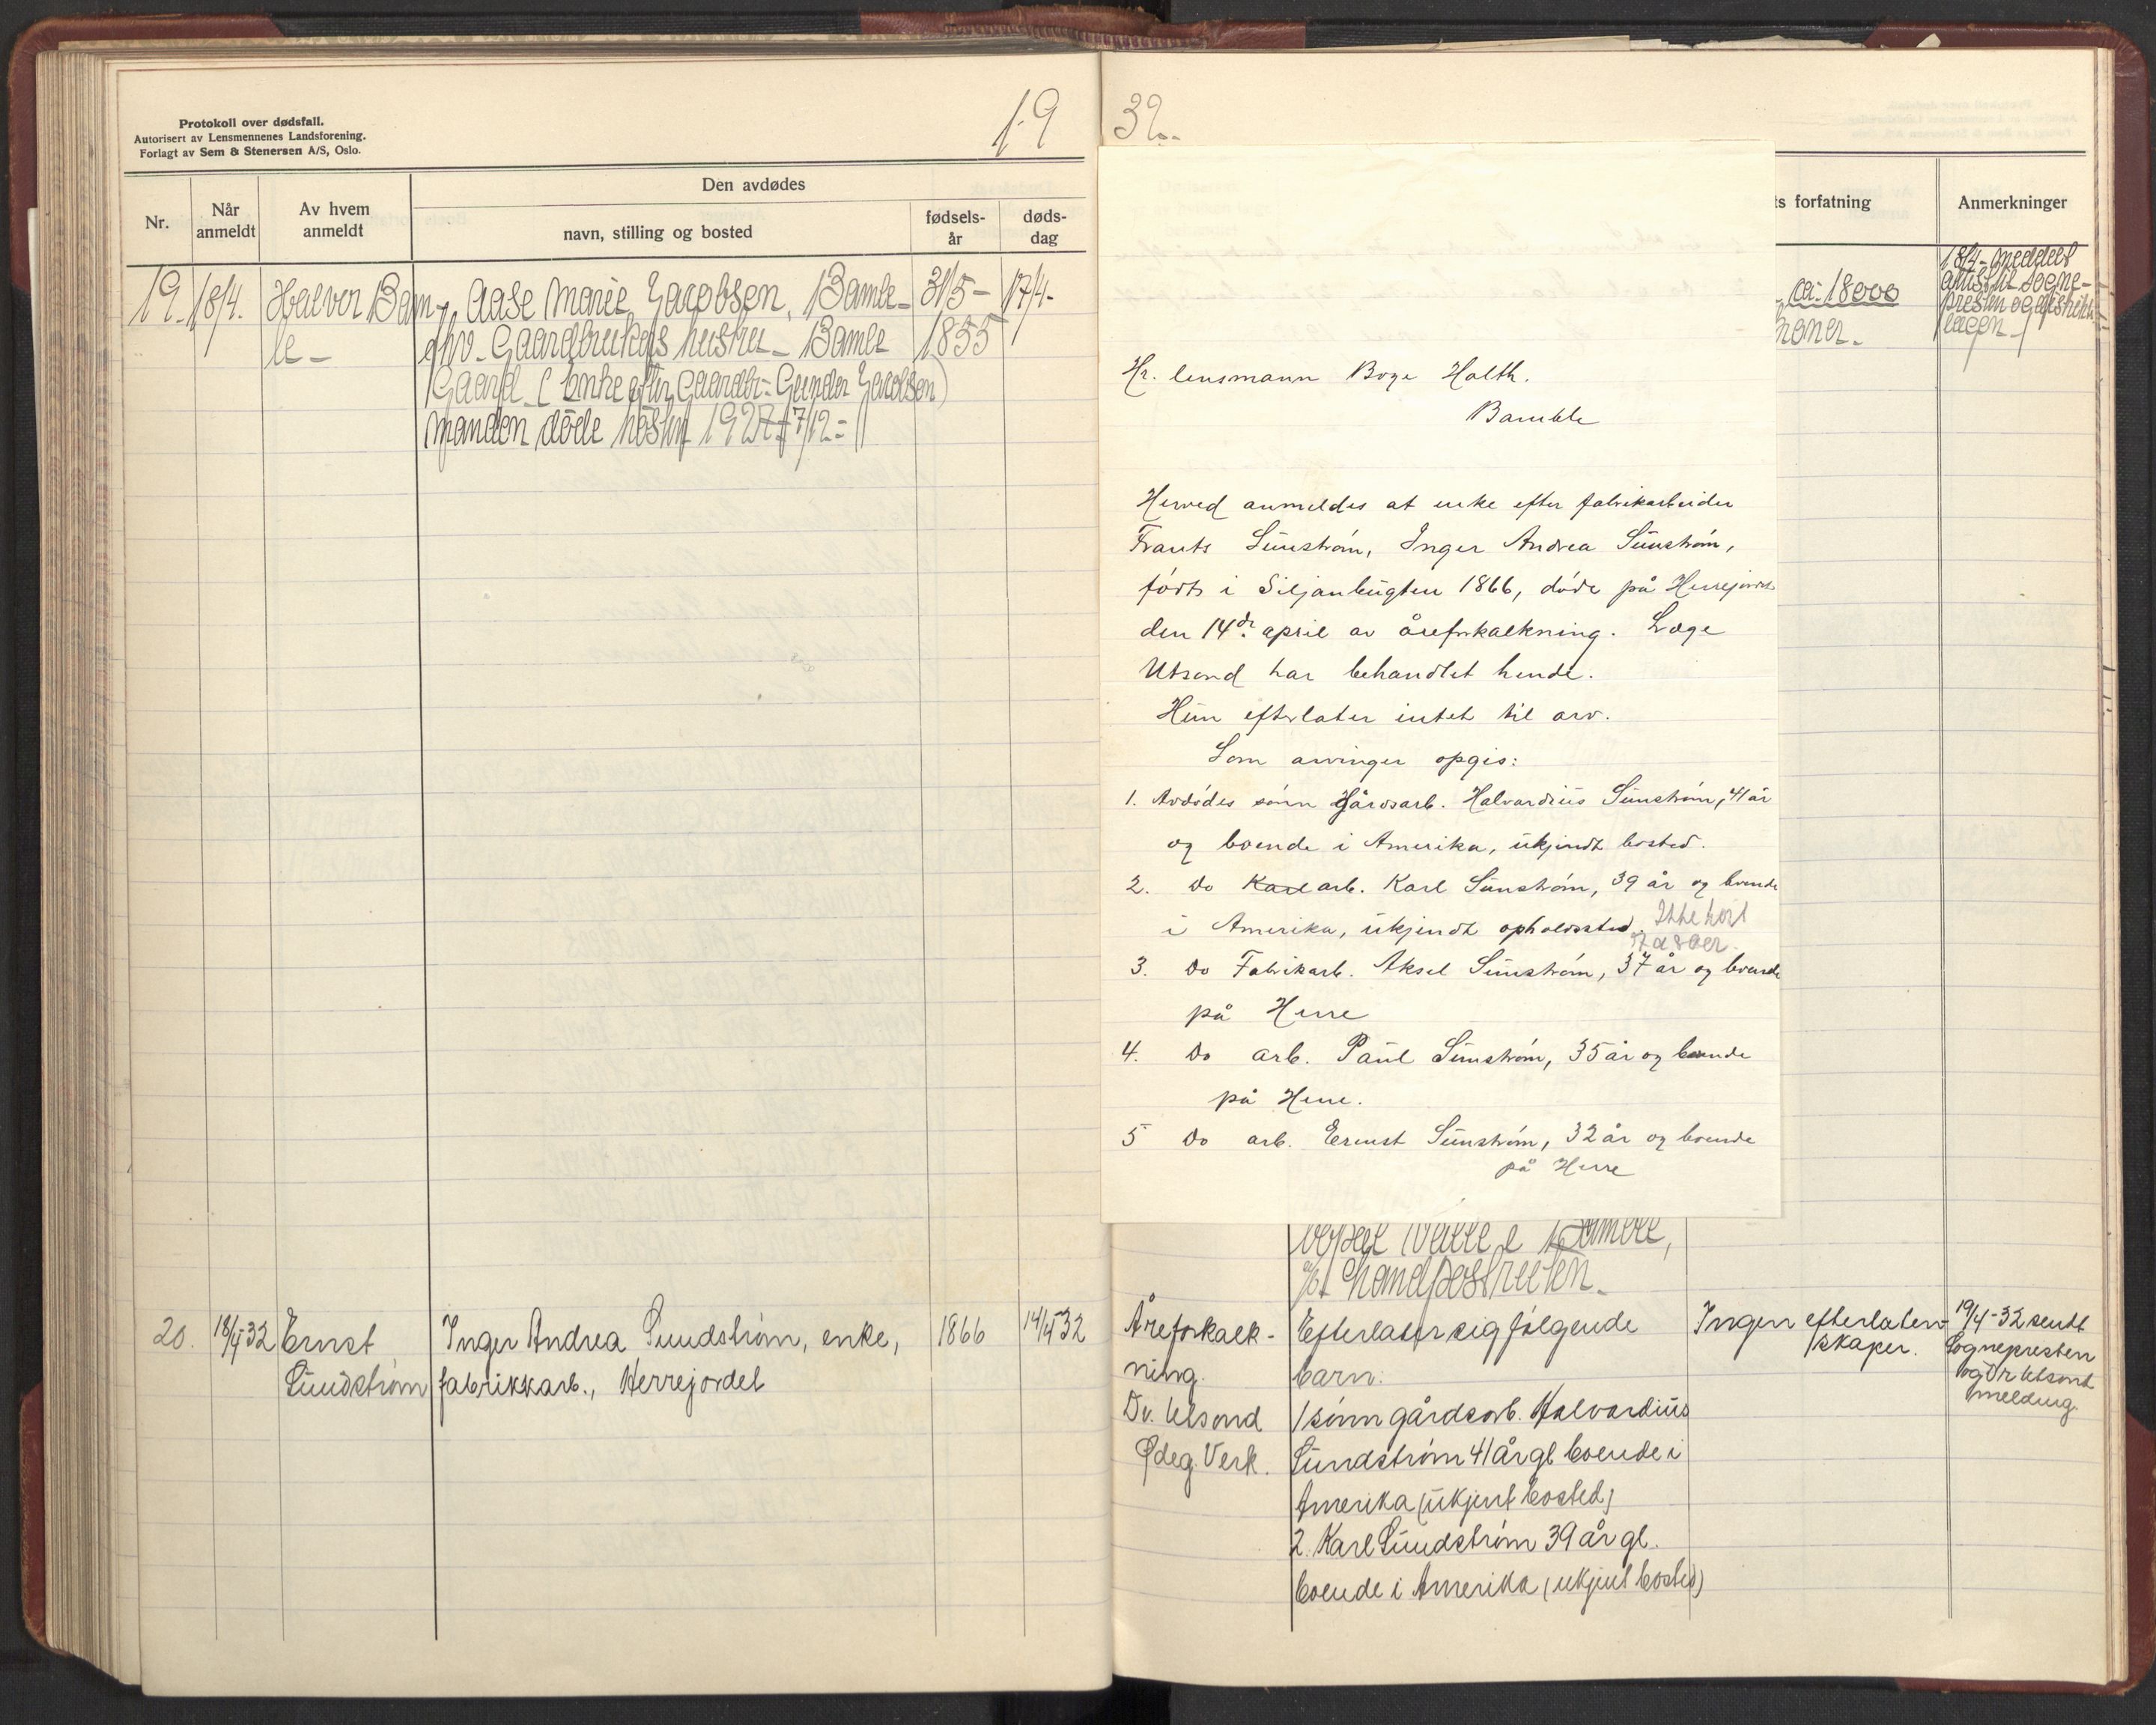 Protokoll over dødsfall.
Autorisert av Lensmennenes Landsforening.
Forlagt av Sem & Stenersen A/S, Oslo.
19
Nr.
Når
anmeldt
Av hvem
anmeldt
Den avdødes
navn, stilling og bosted
fødsels-
år
døds-
dag
19. 18/4. Halvor Bam- Aase Marie Jacobsen, Bamle- 31/5- 17/4-
le - Gaardbrukers hustru - Bamle 1855
Gaard (Enke efter Gaardbr. Gunder Jacobsen)
Manden døde høsten 1927 7/12-
20. 18/4-32 Ernst Inger Andrea Sundstrøm, enke, 1866 14/4-32
Sundstrøm fabrikkarb., Herrejordet
32.-
Hr. lensmann Boye Holth.
Bamble
Herved anmeldes at enke efter fabrikarbeider
Frants Sunström, Inger Andrea Sunström,
födt i Siljanbugten 1866, döde på Herrejordet
den 14de april av åreforkalkning. Læge
Utsond har behandlet hende.
Hun efterlater intet til arv.
Som arvinger opgis:
1. Avdödes sönn Gårdsarb. Halvardius Sunström, 41 år
og boende i Amerika, ukjendt bosted.
2. Do Karl arb. Karl Sunström, 39 år og boende
i Amerika, ukjendt opholdssted. Ikke hört
3. Do Fabrikarb. Aksel Sunström, 37 år og boende
på Herre
4. Do arb. Paul Sunström, 35 år og boende
på Herre.
5 Do arb. Ernst Sunström, 32 år og boende
på Herre
ts forfatning
Anmerkninger
ca. 18000
kroner.
18/4 - meddelt
sogne-
presten og
lægen
Valle i Bamble,
Åreforkalk-
ning.
Dr. Utsond
Ødeg. Verk.
Efterlater sig følgende
barn:
1 sönn gårdsarb. Halvardius
Sundström 41 år gl boende i
Amerika (ukjent bosted)
2. Karl Sundström 39 år gl.
boende i Amerika (ukjent bosted)
Ingen efterlaten-
skaper.
19/4-32 sendt
Sognepresten
og Dr Utsond
melding.